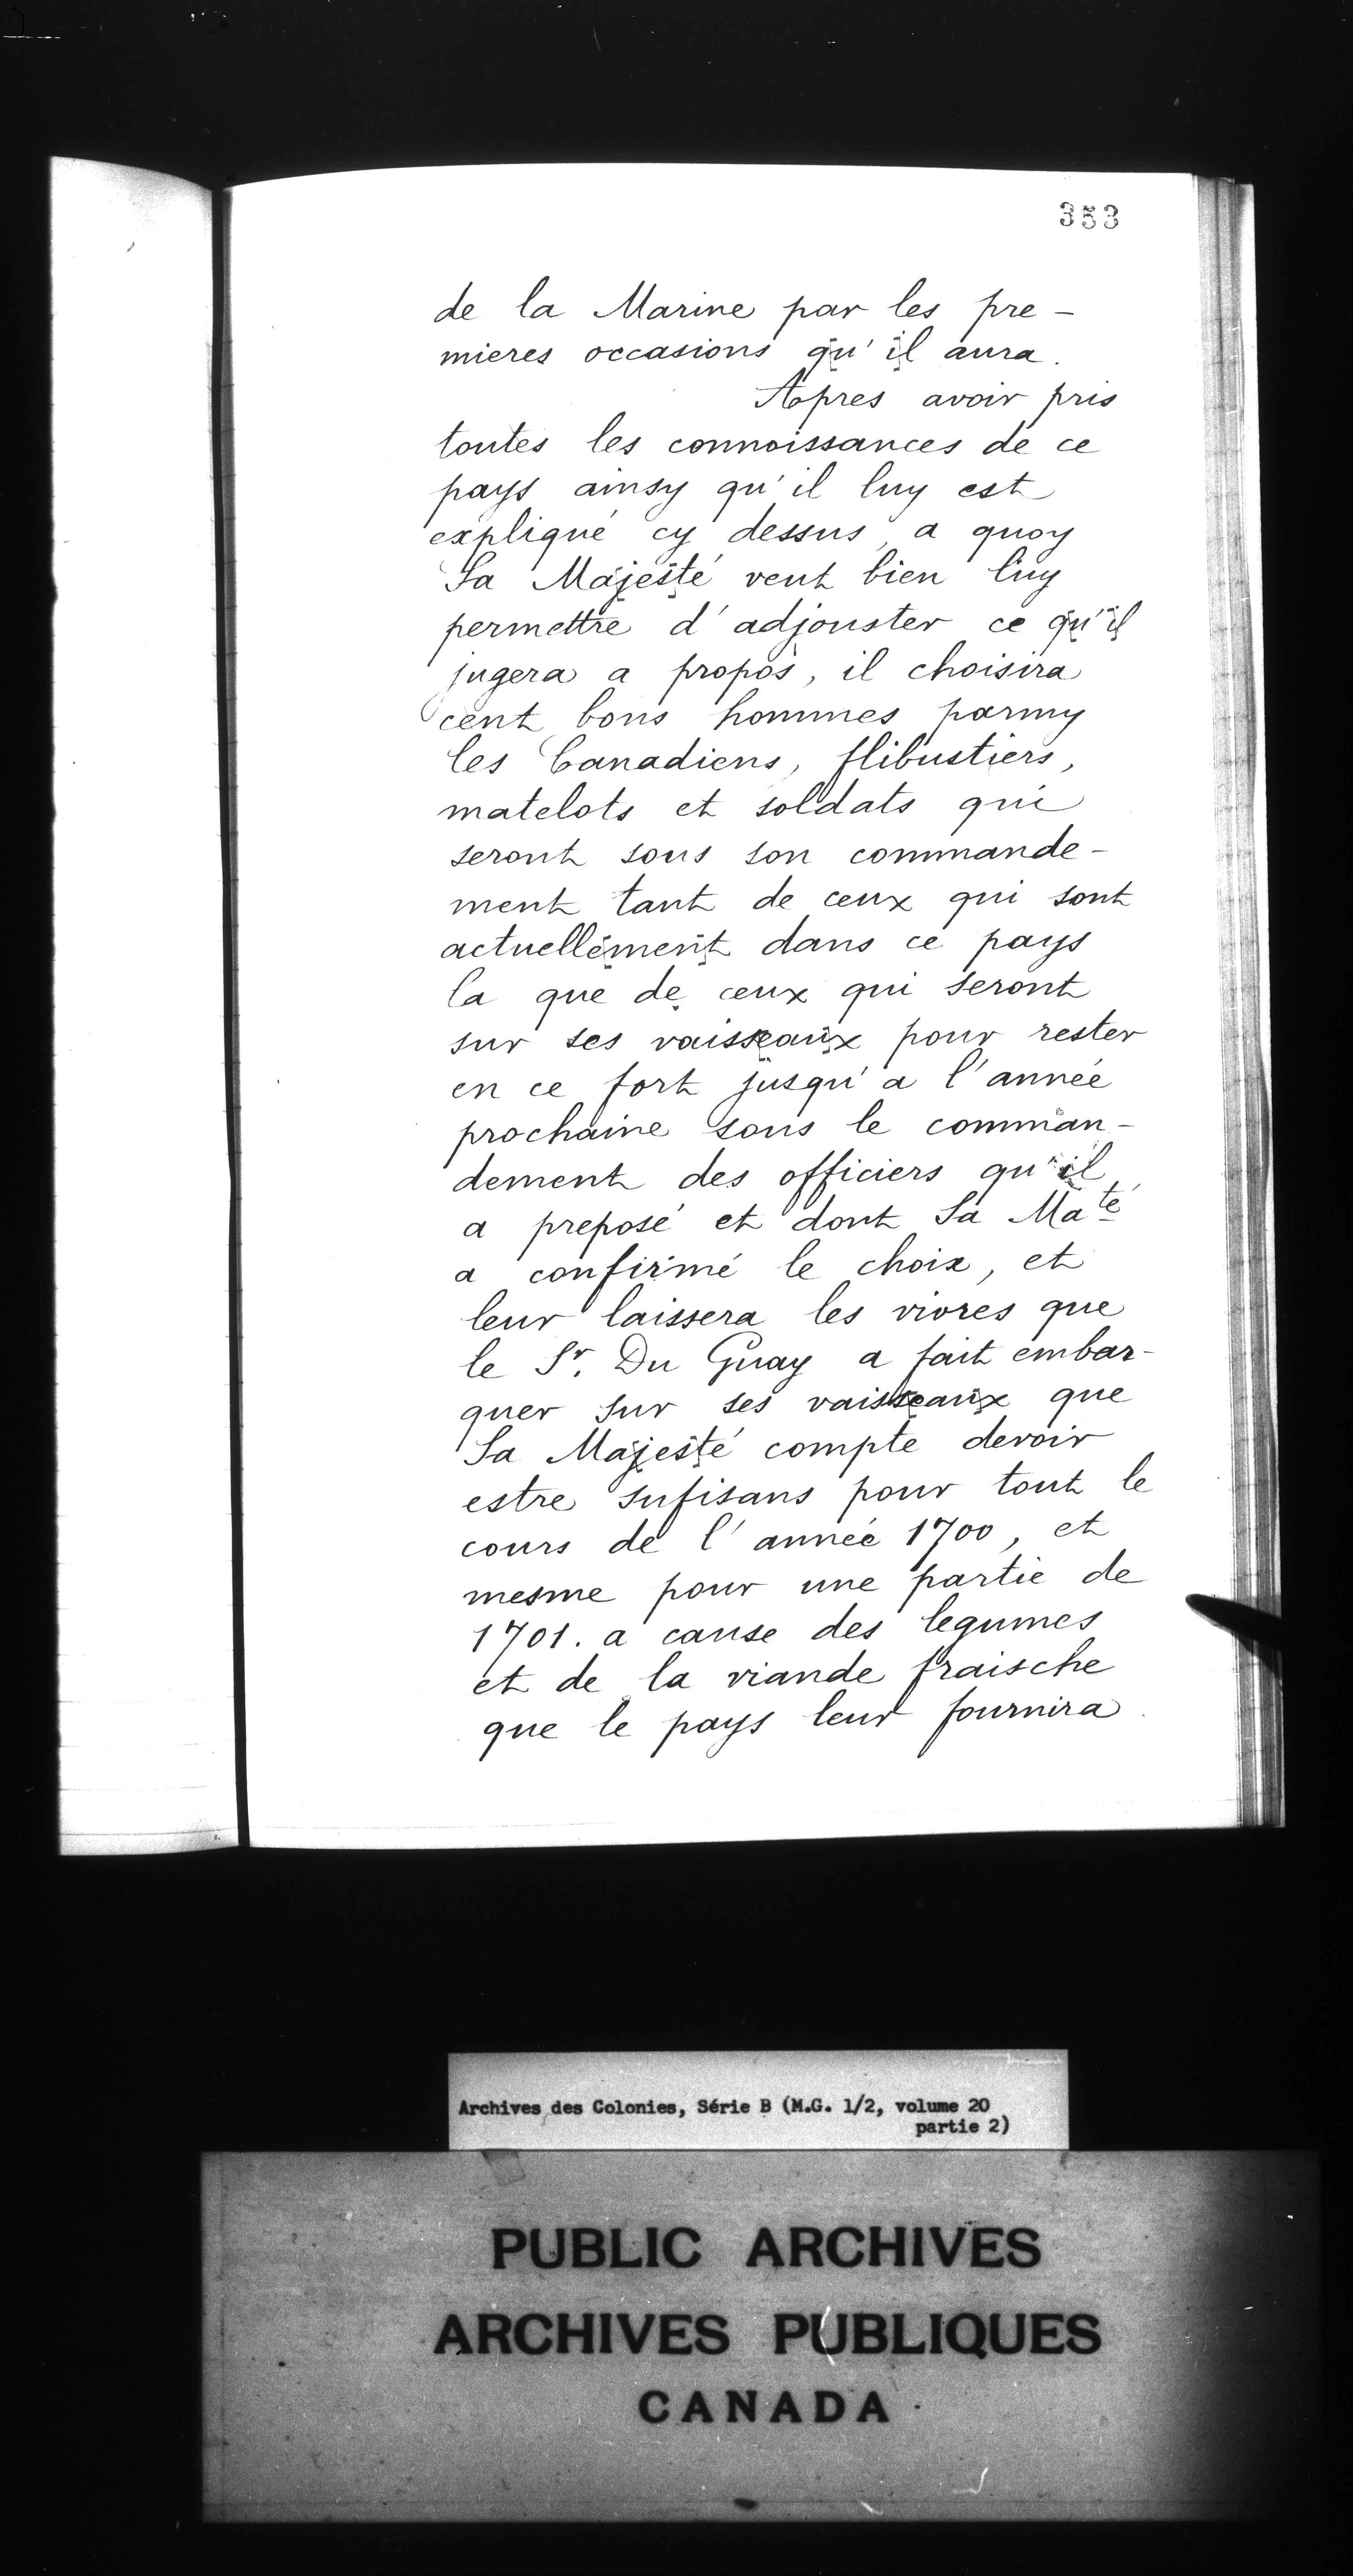 353
de la Marine par les pre-
mieres occasions qu'il aura.
Apres avoir pris
toutes les connoissances de ce
pays ainsy qu'il luy est
expliqué cy dessus, a quoy
Sa Majesté veut bien luy
permettre d'adjouster ce qu'il
jugera a propos, il choisira
cent bons hommes parmy
les Canadiens, flibustiers,
matelots et soldats qui
seront sous son commande-
ment tant de ceux qui sont
actuellement dans ce pays
la que de ceux qui seront
sur ses vaisseaux pour rester
en ce fort jusqu'a l'année
prochaine sous le comman-
dement des officiers qu'il
a preposé et dont Sa Maté
a confirmé le choix, et
leur laissera les vivres que
le Sr. Du Guay a fait embar-
quer sur ses vaisseaux que
Sa Majesté compte devoir
estre sufisans pour tout le
cours de l'année 1700, et
mesme pour une partie de
1701. a cause des legumes
et de la viande fraische
que le pays leur fournira
Archives des Colonies, Série B (M.G. 1/2, volume 20
partie 2)
PUBLIC ARCHIVES
ARCHIVES PUBLIQUES
CANADA